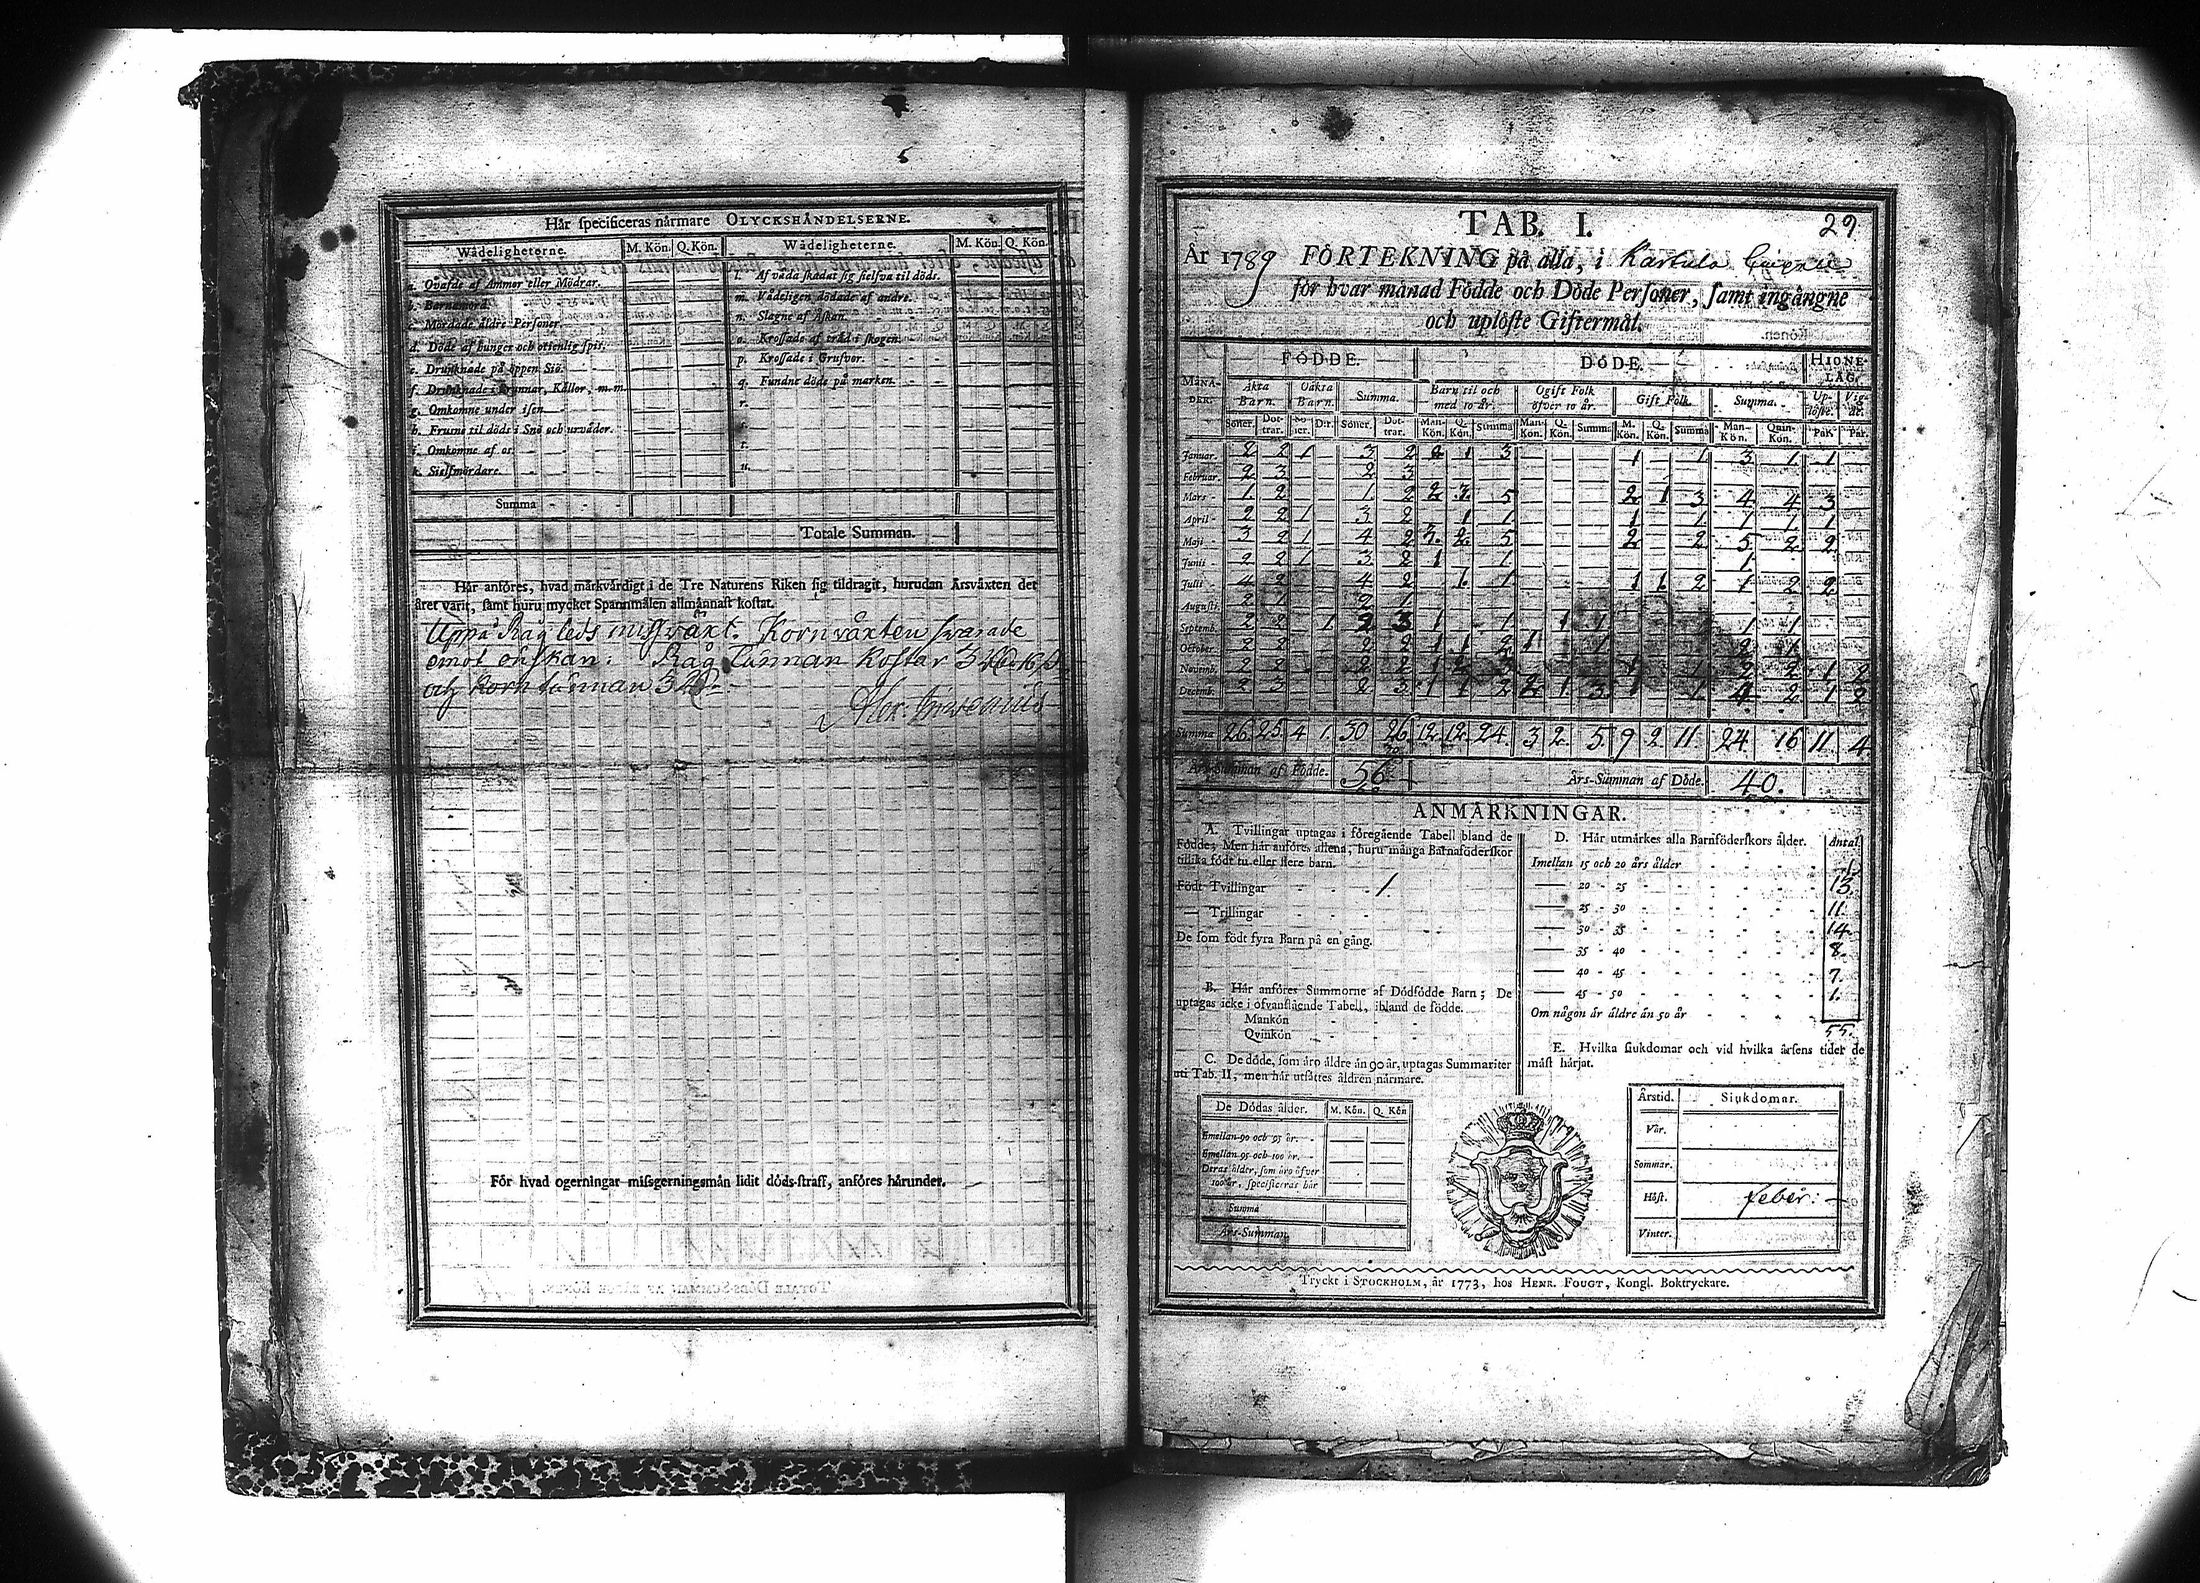 5
Här specificeras närmare OLYCKSHÄNDELSERNE.
Wådeligheterne. M. Kön. Q. Kön. Wådeligheterne. M. Kön. Q. Kön.
a. Qväfde af Ammor eller Mödrar. l. Af våda skadat sig sielfva til döds.
b. Barnamord. m. Vådeligen dödade af andre.
c. Mördade äldre Personer. n. Slagne af Åskan.
d. Döde af hunger och ottenlig spis. o. Krossade af träd i skogen.
e. Drunknade på öppen Siö. p. Krossade i Grufvor.
f. Drunknade i Brunnar, Källor, m.m. q. Fundne döde på marken.
g. Omkomne under isen r.
h. Frusne til döds i Snö och urväder. s.
i. Omkomne af os t.
k. Sielfmördare. u.
Summa
Totale Summan.
Här anföres, hvad märkvärdigt i de Tre Naturens Riken sig tildragit, hurudan Årsväxten det
året varit, samt huru mycket Spannmålen allmännast kostat.
Uppå Råg leds missväxt. Kornväxten svarade
emot önskan: Råg Tunnan kostar 3
och Korn tunnan 3
För hvad ogerningar missgerningsmän lidit döds-straff, anföres härunder.
29
TAB. I.
År 1789 FÖRTEKNING på alla, i Karstula
för hvar månad Födde och Döde Personer, samt ingångne
och uplöste Giftermål.
MÅNADER. FÖDDE. DÖDE. HIONELAG.
Äkta Barn. Oäkta Barn. Summa. Barn til och med 10 år. Ogift Folk öfver 10 år. Gift Folk. Summa. Uplöste. Vigde.
Söner. Dottrar. Söner. D:r. Söner. Dottrar. Mankön. Q. Kön. Summa Mankön. Q. Kön. Summa M. Kön. Q. Kön. Summa Mankön. Quinkön. Par. Par.
Januar. 2 2 1 3 2 2 1 3 1 1 3 1 1
Februar. 2 3 2 3
Mars 1 2 1 2 2 3 5 2 1 3 4 4 3
April 2 2 1 3 2 1 1 1 1 1 1 1
Maji 3 2 1 4 2 3 2 5 2 2 5 2 2
Junii 2 2 1 3 2 1 1 1
Julii 4 2 4 2 1 1 1 1 2 1 2 2
Augusti. 2 1 2 1
Septemb. 2 2 1 2 3 1 1 1 1 1 1
October. 2 2 2 2 1 1 2 1 1 2 1
Novemb. 2 2 2 2 1 2 3 1 1 2 2 1 2
Decemb. 2 3 2 3 1 1 2 2 1 3 1 1 4 2 1 2
Summa 26 25 4 1 30 26 12 12 24 3 2 5 9 2 11 24 16 11 4
Års-Summan af Födde. 56 Års-Summan af Döde 40.
ANMÄRKNINGAR.
A. Tvillingar uptagas i föregående Tabell bland de
Födde; Men här anföres allena, huru många Barnaföderskor
tillika födt tu eller flere barn.
Födt Tvillingar 1.
— Trillingar
De som födt fyra Barn på en gång.
B. Här anföres Summorne af Dödfödde Barn; De
uptagas icke i ofvanstående Tabell, ibland de födde.
Mankön
Qvinkön
C. De döde, som äro äldre än 90 år, uptagas Summariter
uti Tab. II, men här utsättes åldren närmare.
De Dödas ålder. M. Kön. Q. Kön
Emellan 90 och 95 år.
Emellan 95 och 100 år.
Deras ålder, som äro öfver
100 år, specificeras här
Summa
Års-Summan
D. Här utmärkes alla Barnföderskors ålder. Antal
Imellan 15 och 20 års ålder 1
— 20 - 25 13.
— 25 - 30 11
— 30 - 35 14.
— 35 - 40 8.
— 40 - 45 7.
— 45 - 50 1.
Om någon är äldre än 50 år
55.
E. Hvilka siukdomar och vid hvilka årsens tider de
mäst härjat.
Årstid. Siukdomar.
Vår.
Sommar.
Höst. feber:
Vinter.
Tryckt i STOCKHOLM, år 1773, hos HENR. FOUGT, Kongl. Boktryckare.